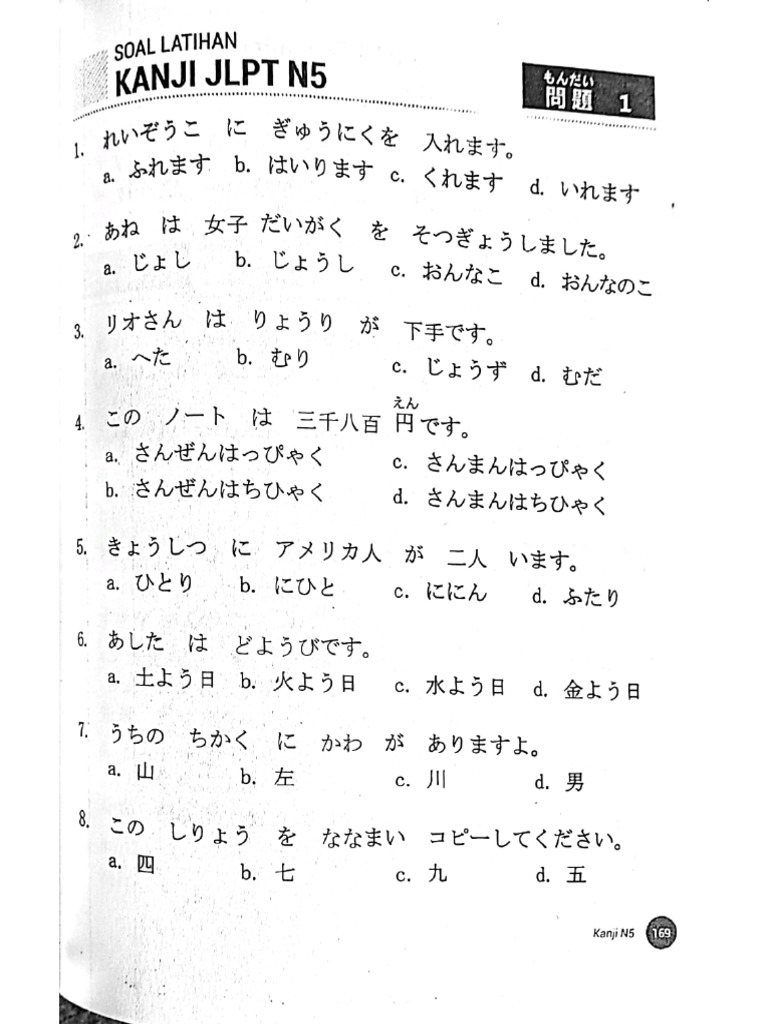 SOAL LATIHAN
KANJI JLPT N5
もんだい
問題 1
1. れいぞうこ に ぎゅうにくを 入れます。
a. ふれます b. はいります c. くれます d. いれます
2. あね は 女子 だいがく を そつぎょうしました。
a. じょし b. じょうし c. おんなこ d. おんなのこ
3. リオさん は りょうり が 下手です。
a. へた b. むり c. じょうず d. むだ
えん
4. この ノート は 三千八百 円 です。
a. さんぜんはっぴゃく c. さんまんはっぴゃく
b. さんぜんはちひゃく d. さんまんはちひゃく
5. きょうしつ に アメリカ人 が 二人 います。
a. ひとり b. にひと c. ににん d. ふたり
6. あした は どようびです。
a. 土よう日 b. 火よう日 c. 水よう日 d. 金よう日
7. うちの ちかく に かわ が ありますよ。
a. 山 b. 左 c. 川 d. 男
8. この しりょう を ななまい コピーしてください。
a. 四 b. 七 c. 九 d. 五
Kanji N5 169